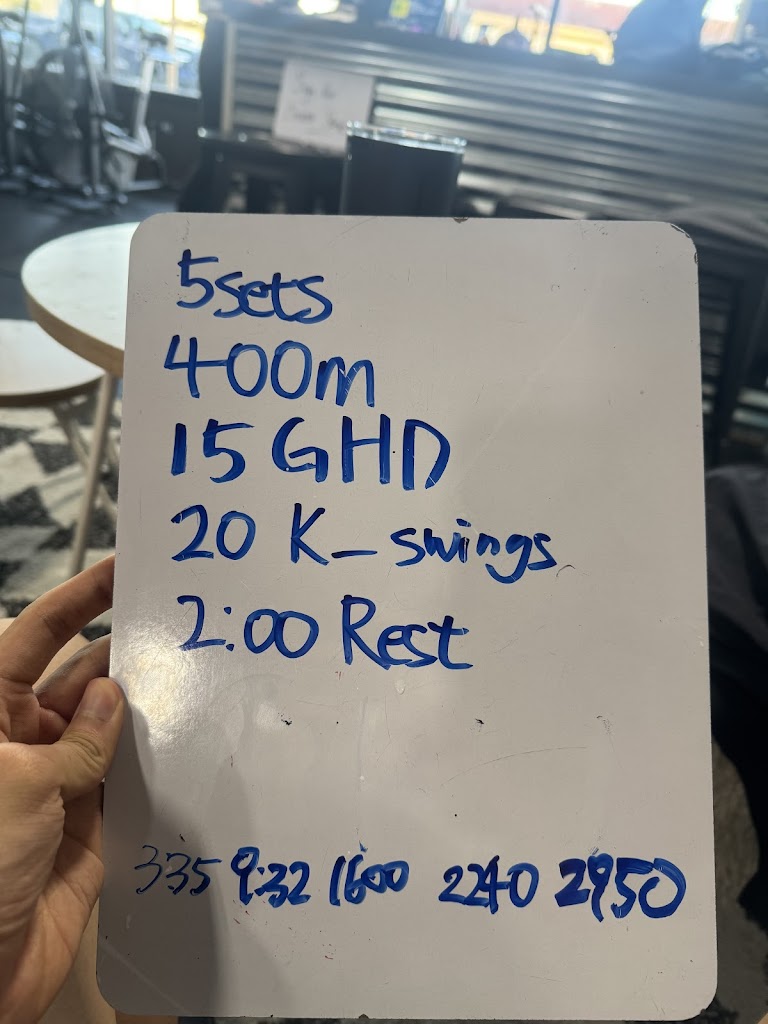 5sets
400m
15 GHD
20 K_swings
2:00 Rest
335 9:32 1600 2240 2950